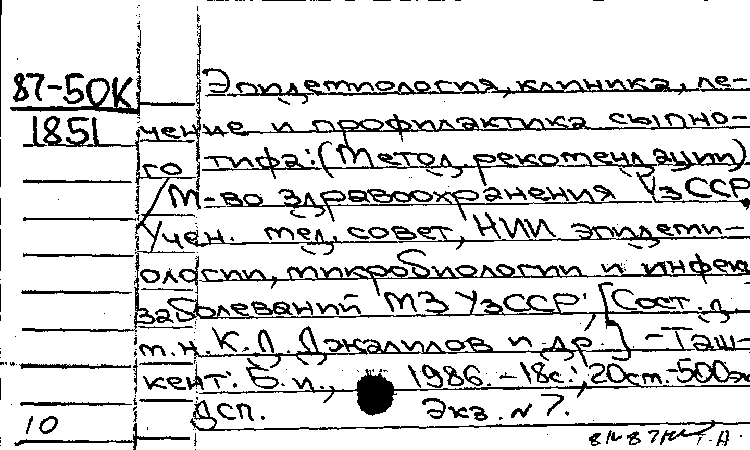 87-50К
1851
Эпидемиология, клиника, ле-
чение и профилактика сыпно-
го тифа: (Метод. рекомендации)
/ М-во здравоохранения УзССР,
Учен. мед. совет, НИИ эпидеми-
ологии, микробиологии и инфек.
заболеваний МЗ УзССР; [Сост. д.
м.н. К.Д. Джалилов и др.] -Таш-
кент: Б.и., 1986. -18с.; 20см.-500э
ДСП. Экз. №7.
10